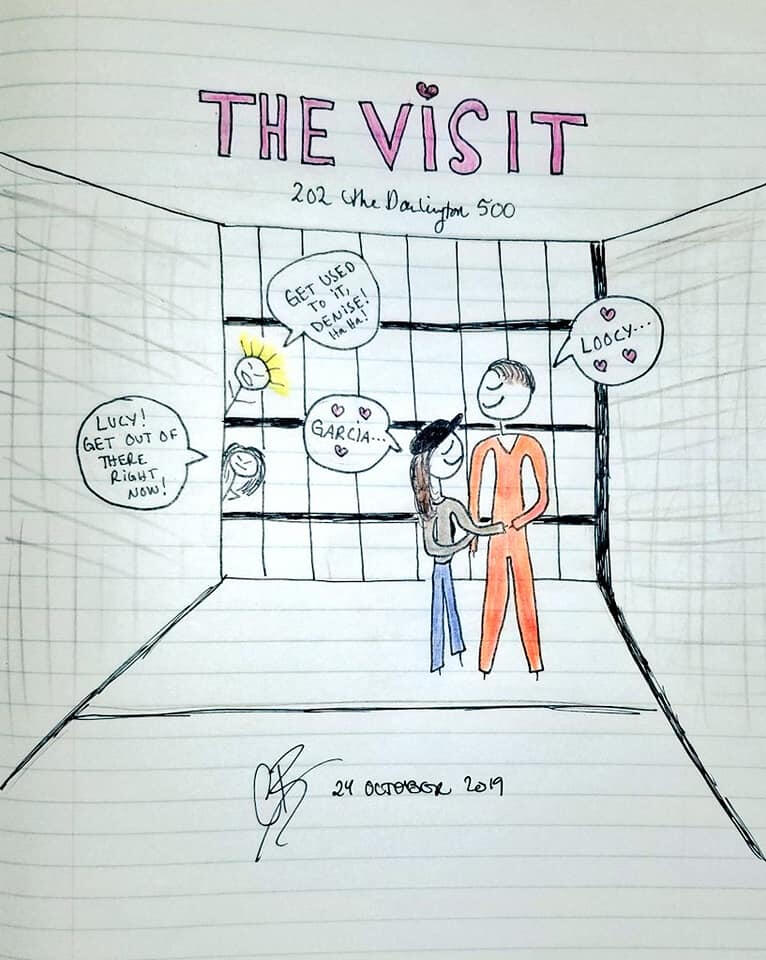 THE ViSIT
202 The Darlington 500
GET USED
TO iT,
DENiSE!
Ha Ha!
LOOCY...
GARCIA...
LUCY!
GET OUT OF
THERE
RiGHT
NOW!
24 OCTOBER 2019